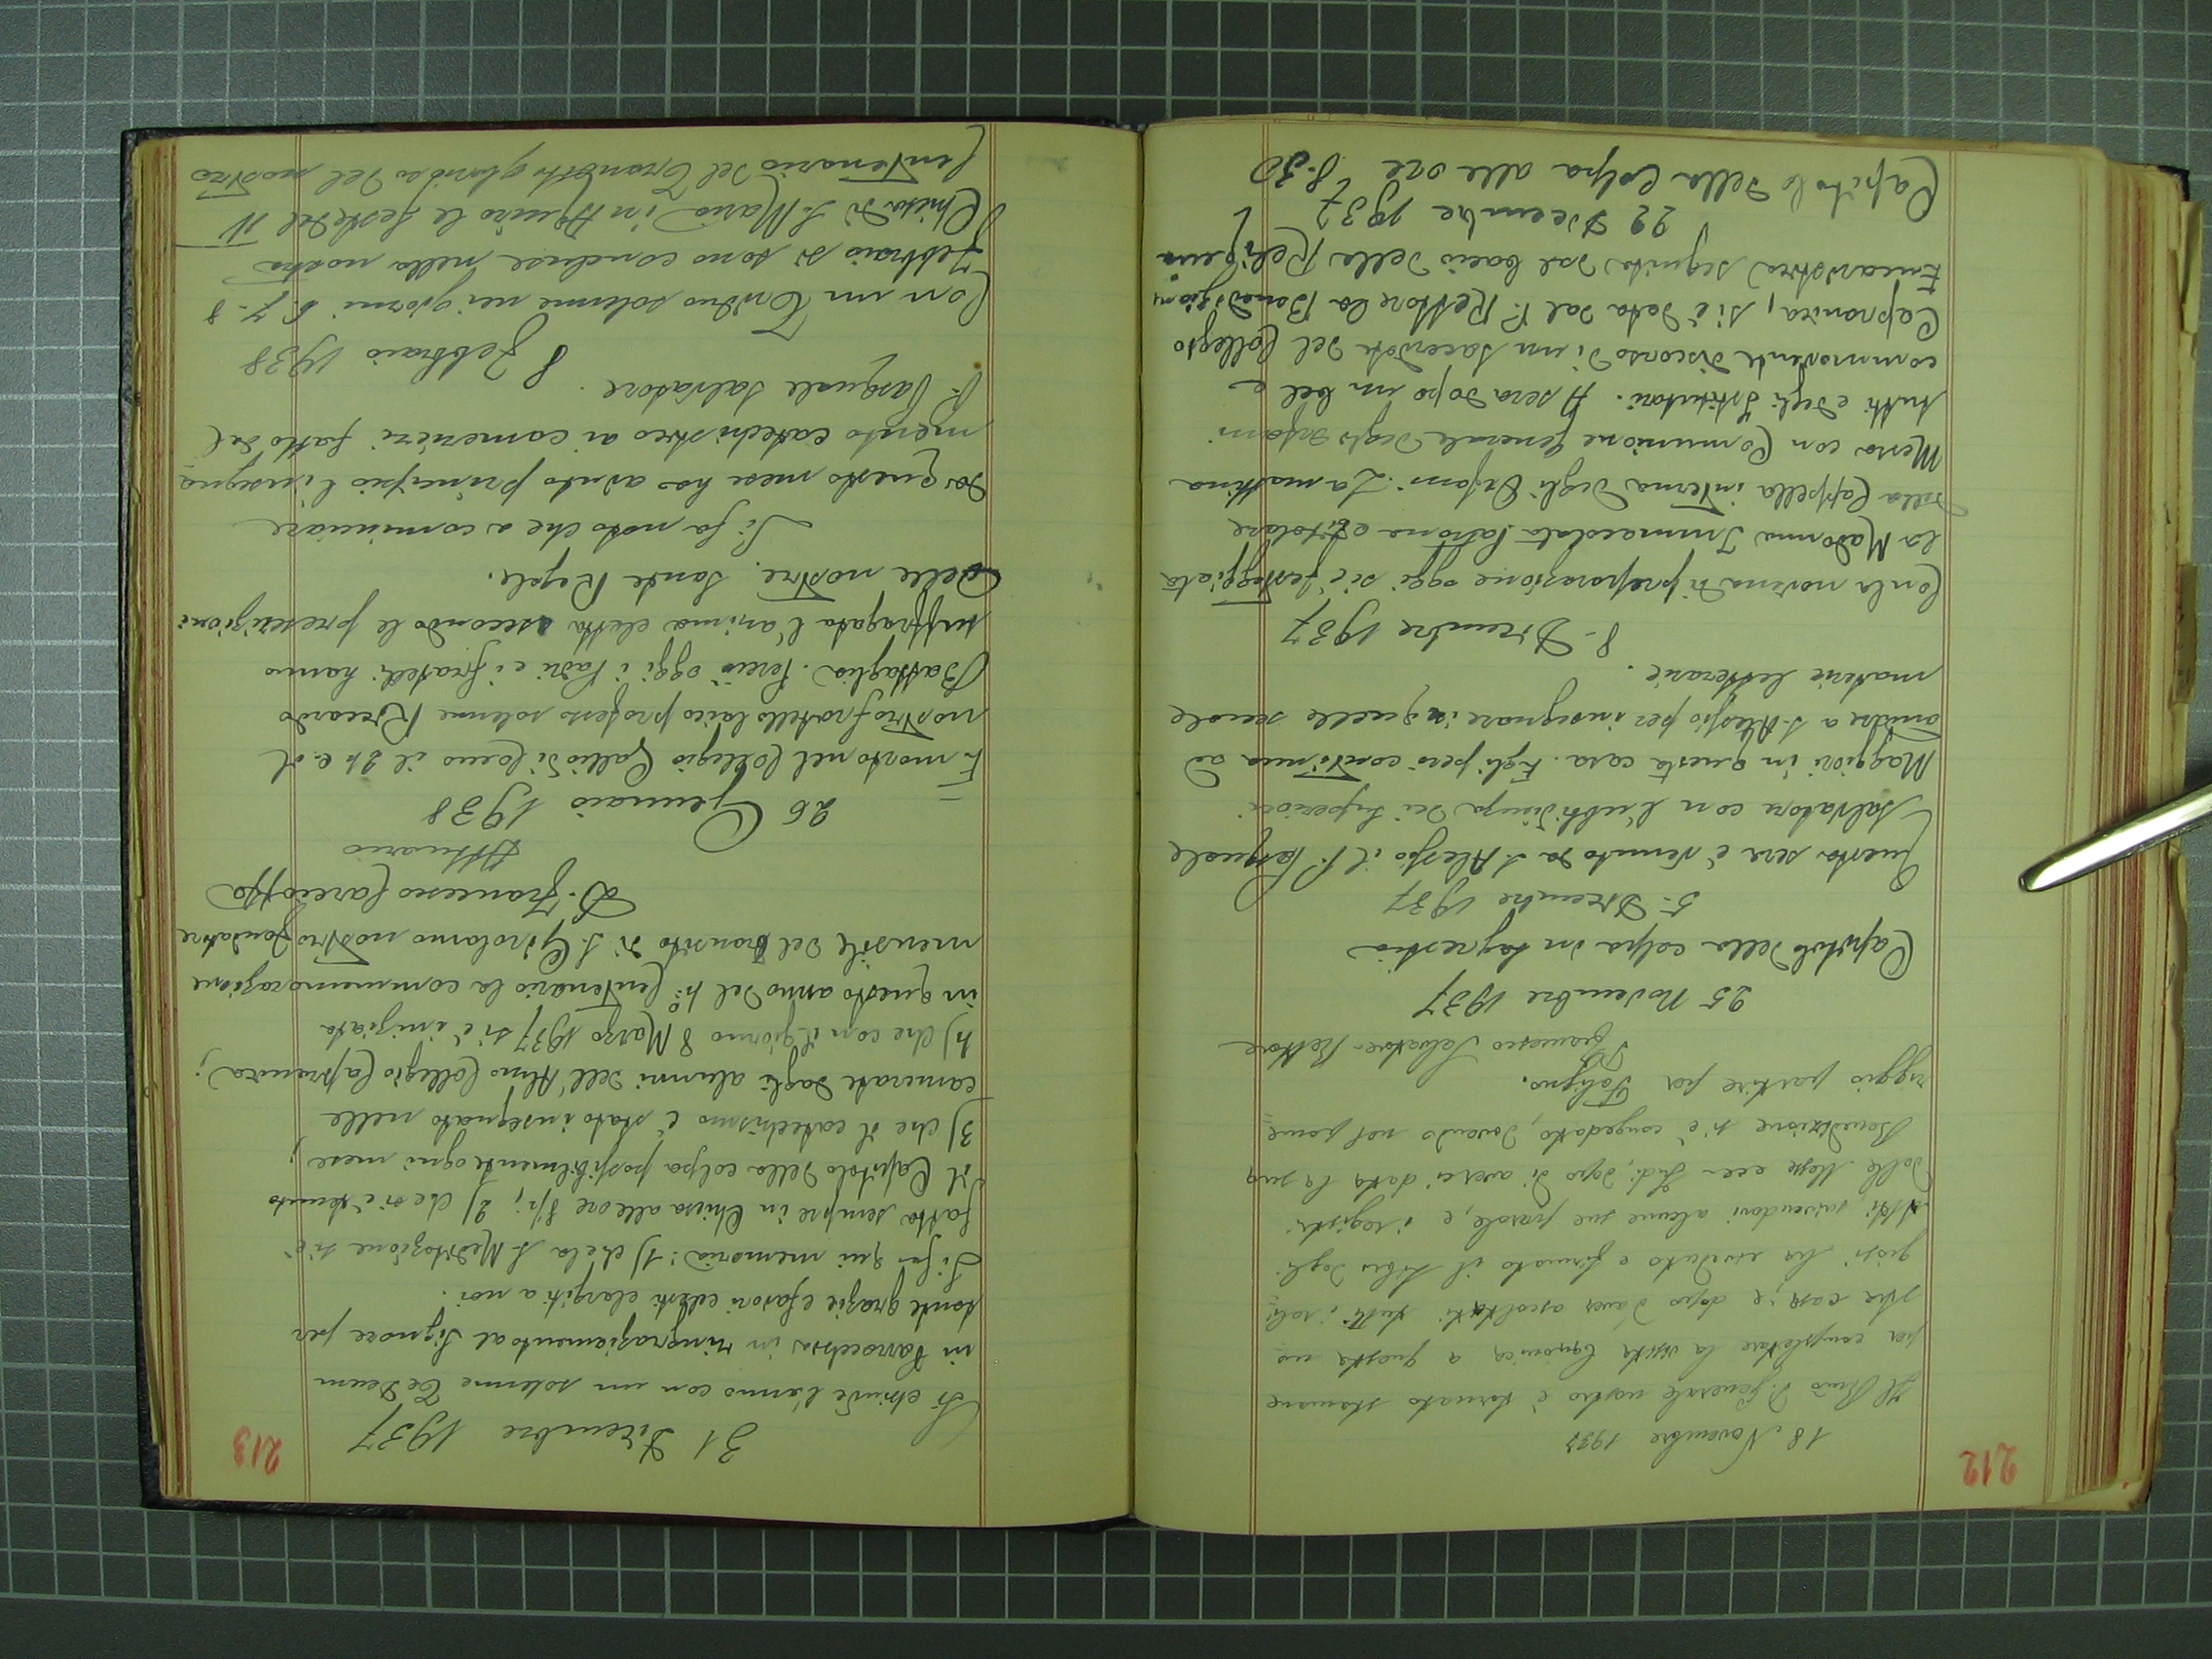 212
18 Novembre 1937
Il Rmo P. Generale nostro è tornato stamane
per completare la visita Canonica a questa no-
stra casa; e dopo d'aver ascoltati tutti i reli-
giosi ha veduto e firmato il Libro degli
Atti, scrivendovi alcune sue parole, e i registri
delle Messe ecc. Indi, dopo di averci data la sua
Benedizione si è congedato, dovendo nel pome-
riggio partire per Foligno.
P. Francesco Salvatore Rettore
25 Novembre 1937
Capitolo della colpa in sagrestia
5. Dicembre 1937
Questa sera è venuto da S. Alessio il P. Pasquale
Salvatore con l'ubbidienza dei Superiori
Maggiori in questa casa. Egli però continua ad
andare a S. Alessio per insegnare in quelle scuole
materie letterarie.
8. Dicembre 1937
Con la novena di preparazione oggi si è festeggiata
la Madonna Immacolata Patrona e titolare
della Cappella interna degli Orfani. La mattina
Messa con Comunione Generale degli Orfani
tutti e degli Istitutori. A sera dopo un bel e
commovente discorso di un sacerdote del Collegio
Capranica, si è data dal P. Rettore la Benedizione
Eucaristica seguita dal bacio della Reliquia
22 Dicembre 1937
Capitolo della Colpa alle ore 8.30
213
31 Dicembre 1937
Si chiude l'anno con un solenne Te Deum
in Parrocchia in ringraziamento al Signore per
tante grazie e favori celesti elargiti a noi.
Si fa qui memoria: 1) che la S. Meditazione si è
fatta sempre in Chiesa alle ore 8 1/2; 2) che si è tenuto
il Capitolo della colpa possibilmente ogni mese;
3) che il catechismo è stato insegnato nelle
camerate dagli alunni dell'Almo Collegio Capranica;
4) che con il giorno 8 Marzo 1937 si è iniziata
in questo anno del 4° Centenario la commemorazione
mensile del transito di S. Girolamo nostro Fondatore
D. Francesco
Attuario
26 Gennaio 1938
È morto nel Collegio Gallio di Como il 24 c. il
nostro fratello laico professo solenne Riccardo
Battaglia. Perciò oggi i Padri e i fratelli hanno
suffragata l'anima eletta secondo le prescrizioni
delle nostre Sante Regole.
Si fa noto che a cominciare
da questo mese ha avuto principio l'insegna-
mento catechistico ai camerieri fatto dal
P. Pasquale Salvatore.
8 Febbraio 1938
Con un Triduo solenne nei giorni 6. 7. 8
Febbraio si sono concluse nella nostra
Chiesa di S. Maria in Aquiro le feste del IV
Centenario del Transito glorioso del nostro